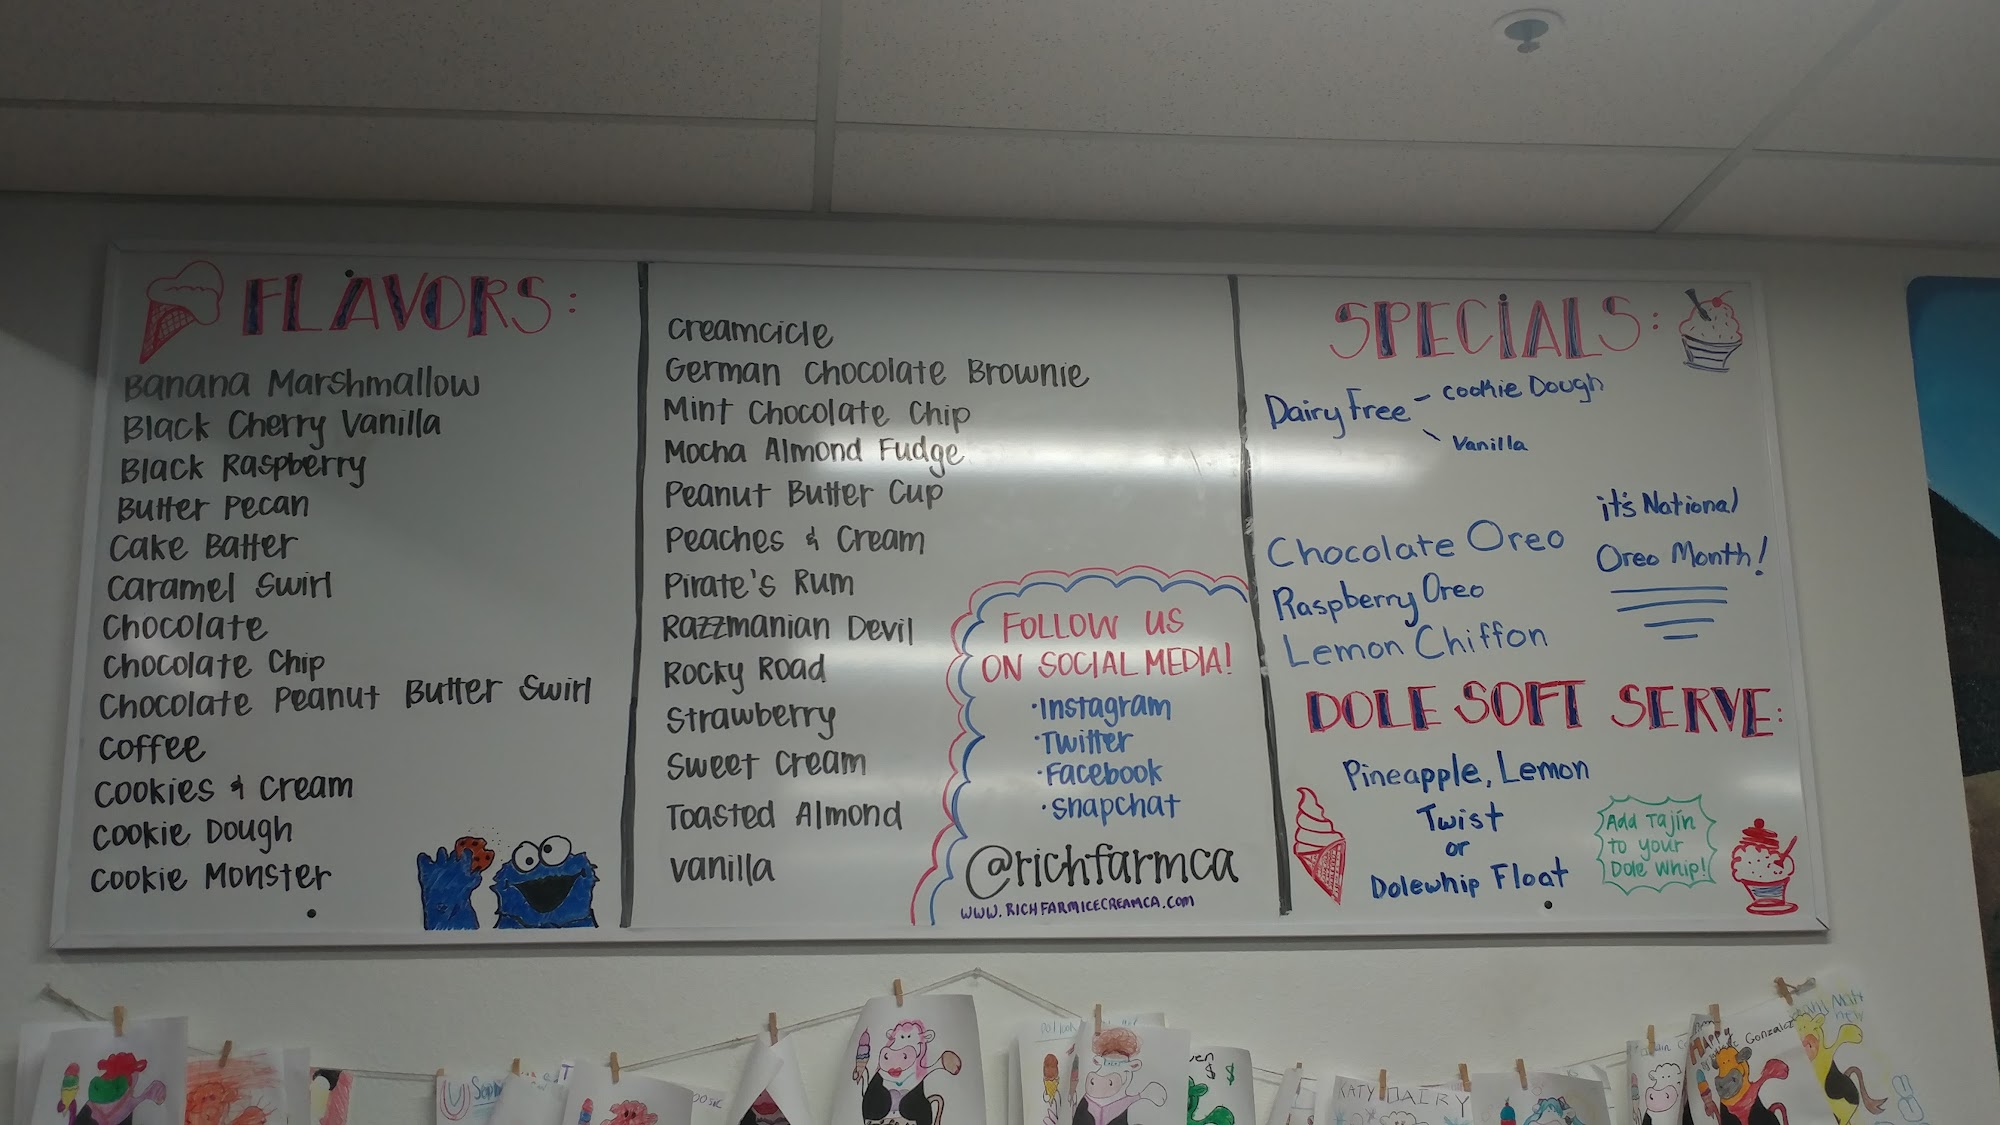 FLAVORS:
Banana Marshmallow
Black Cherry Vanilla
Black Raspberry
Butter Pecan
Cake Batter
Caramel Swirl
Chocolate
Chocolate Chip
Chocolate Peanut Butter Swirl
Coffee
Cookies & Cream
Cookie Dough
Cookie Monster
Creamcicle
German Chocolate Brownie
Mint Chocolate Chip
Mocha Almond Fudge
Peanut Butter Cup
Peaches & Cream
Pirate's Rum
Razzmanian Devil
Rocky Road
Strawberry
Sweet Cream
Toasted Almond
Vanilla
FOLLOW US
ON SOCIAL MEDIA!
·Instagram
·Twitter
·Facebook
·Snapchat
@richfarmca
WWW.RICHFARMICECREAMCA.COM
SPECIALS:
Dairy Free - Cookie Dough
\ Vanilla
it's National
Oreo Month!
Chocolate Oreo
Raspberry Oreo
Lemon Chiffon
DOLE SOFT SERVE:
Pineapple, Lemon
Twist
or
Dolewhip Float
Add Tajín
to your
Dole Whip!
KATY DAIRY
HAPPY
Gonzalez